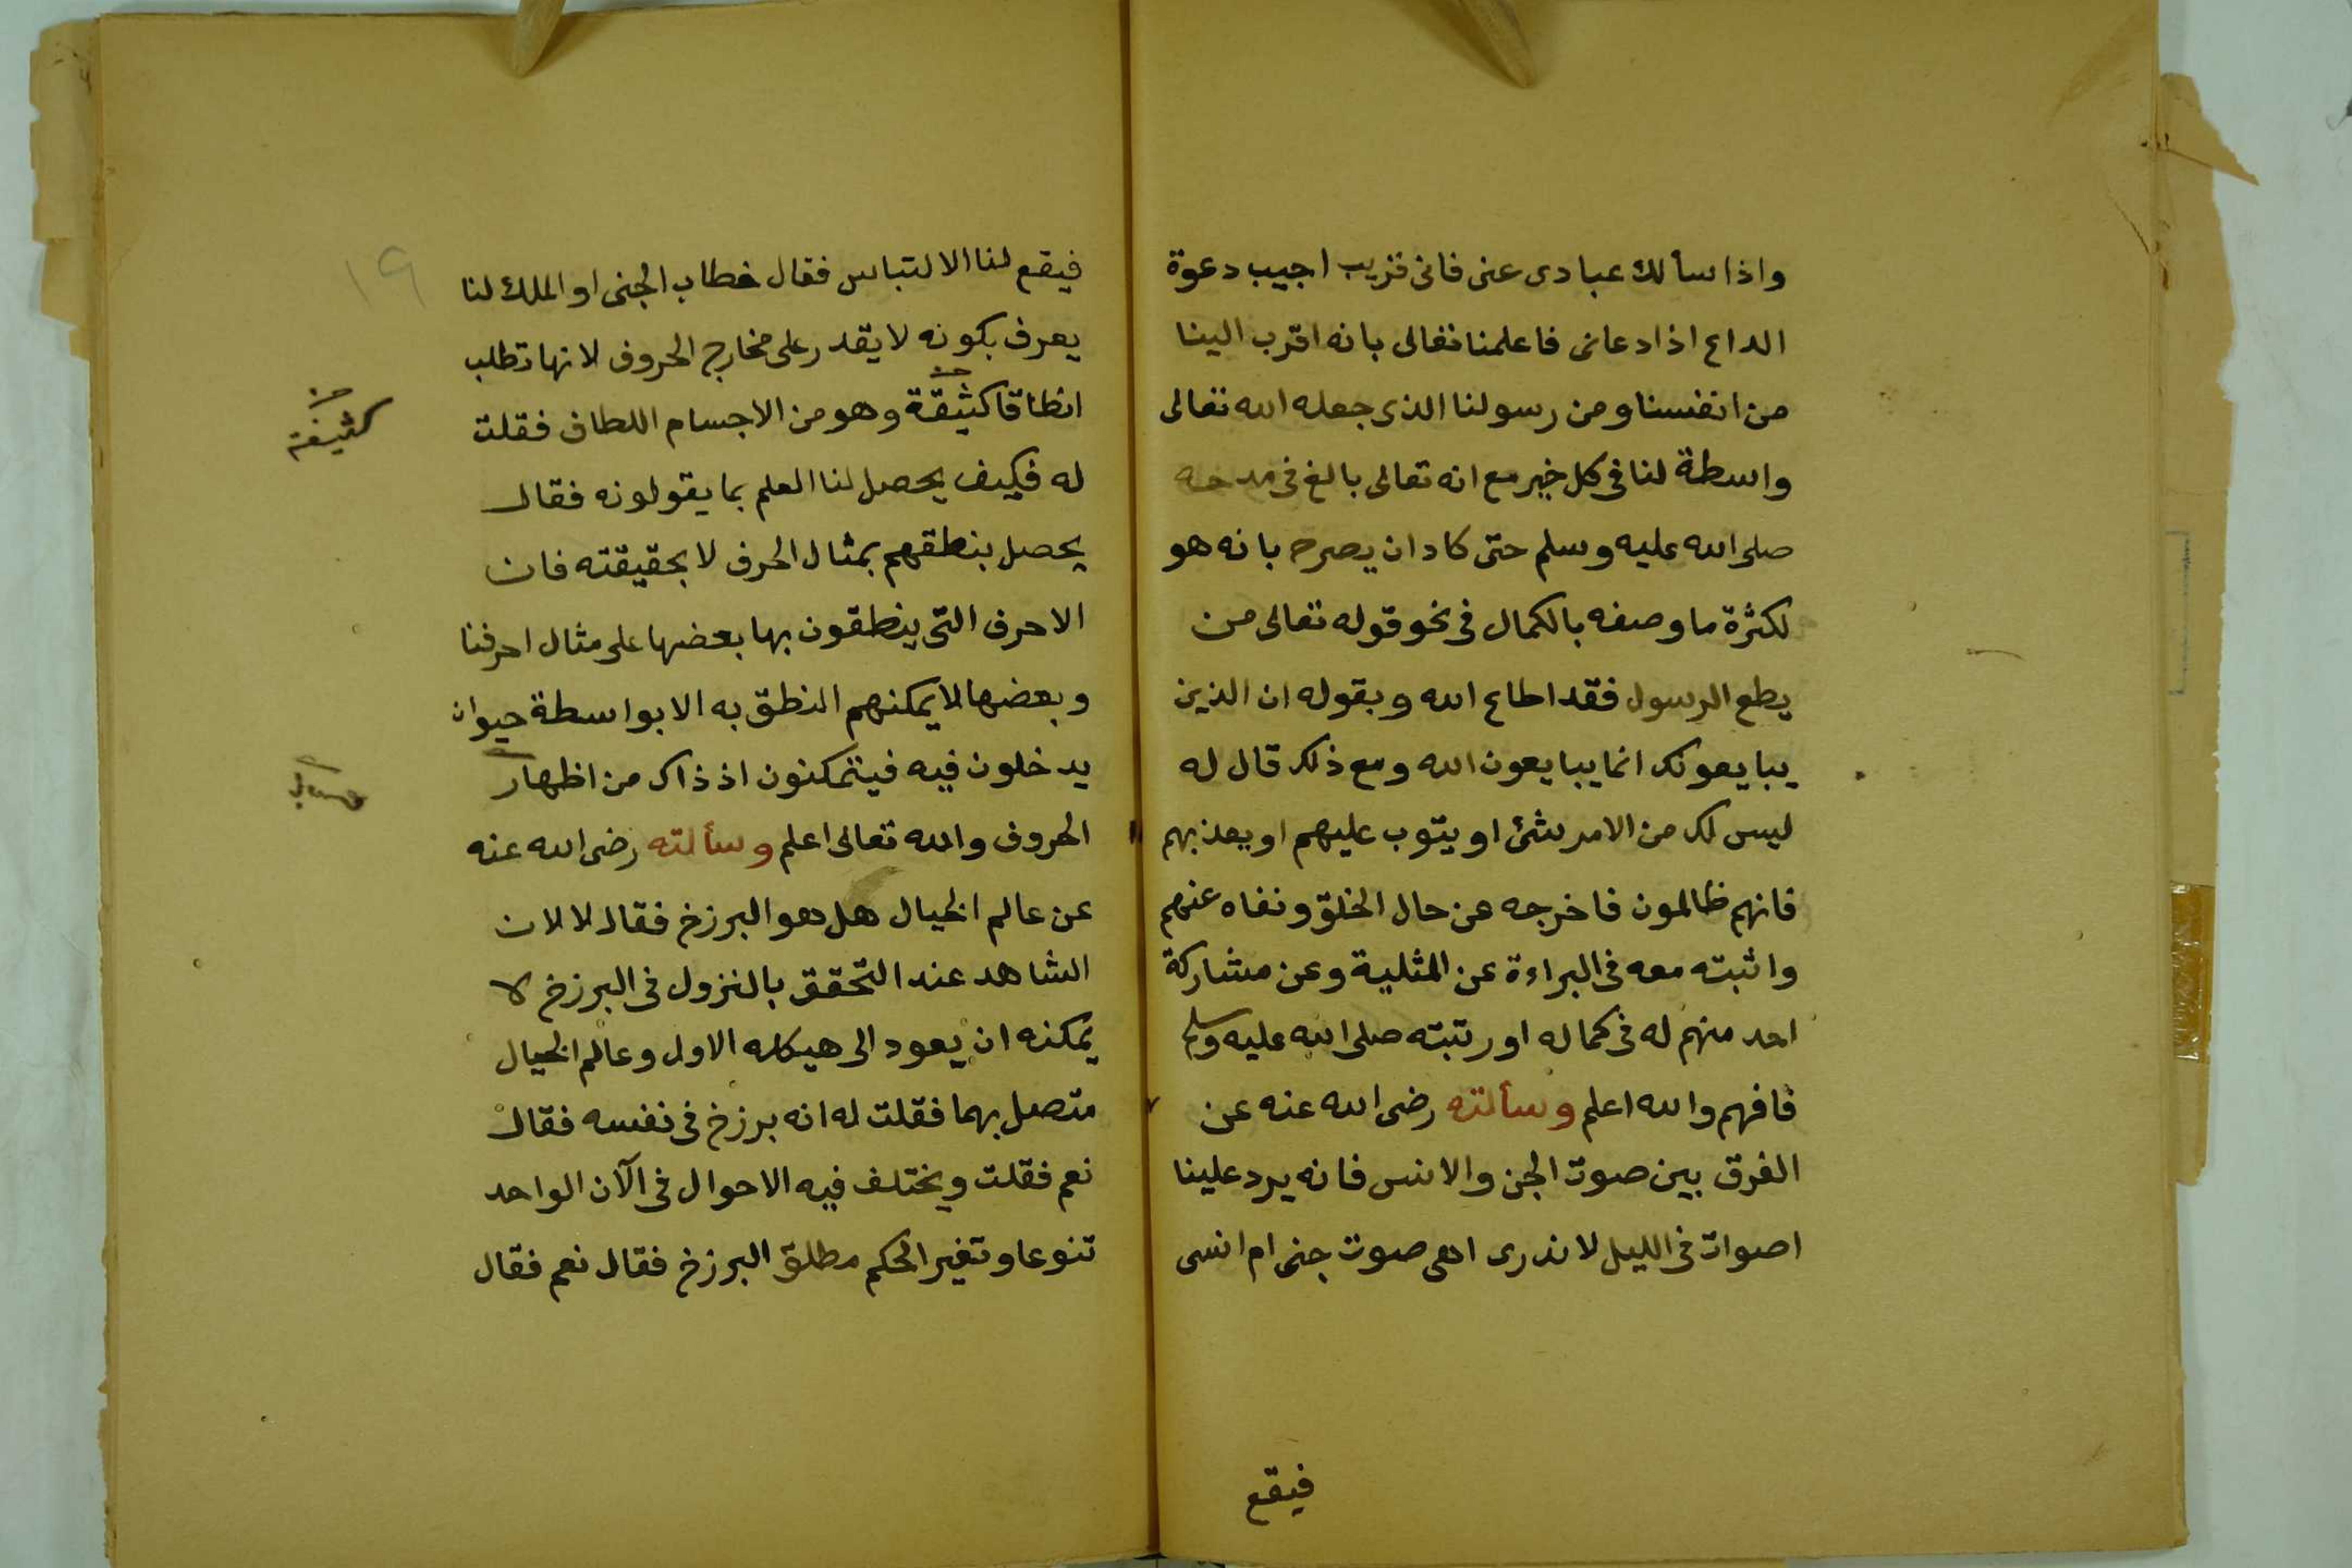 واذا سألك عبادى عنى فانى قريب اجيب دعوة
الداع اذا دعانى فاعلمنا تعالى بانه اقرب الينا
من انفسنا ومن رسولنا الذى جعله الله تعالى
واسطة لنا فى كل خير مع انه تعالى بالغ فى مدحه
صلى الله عليه وسلم حتى كاد ان يصرح بانه هو
لكثرة ما وصفه بالكمال فى نحو قوله تعالى من
يطع الرسول فقد اطاع الله وبقوله ان الذين
يبايعونك انما يبايعون الله ومع ذلك قال له
ليس لك من الامر شئ او يتوب عليهم او يعذبهم
فانهم ظالمون فاخرجه عن حال الخلق ونفاه عنهم
واثبته معه فى البراءة عن المثلية وعن مشاركة
احد منهم له فى كماله او رتبته صلى الله عليه وسلم
فافهم والله اعلم وسألته رضى الله عنه عن
الفرق بين صوت الجن والانس فانه يرد علينا
اصوات فى الليل لا ندرى اهى صوت جنى ام انسى
فيقع
١٩
فيقع لنا الالتباس فقال خطاب الجنى او الملك لنا
يعرف بكونه لا يقدر على مخارج الحروف لانها تطلب
انطاقا كثيقة وهو من الاجسام اللطاف فقلت
كثيفة
له فكيف يحصل لنا العلم بما يقولونه فقال
يحصل بنطقهم بمثال الحرف لا بحقيقته فان
الاحرف التى ينطقون بها بعضها على مثال احرفنا
وبعضها لا يمكنهم النطق به الا بواسطة حيوان
يدخلون فيه فيتمكنون اذ ذاك من اظهار
الحروف والله تعالى اعلم وسألته رضى الله عنه
عن عالم الخيال هل هو البرزخ فقال لا لان
الشاهد عند التحقق بالنزول فى البرزخ لا
يمكنه ان يعود الى هيكله الاول وعالم الخيال
متصل بهما فقلت له انه برزخ فى نفسه فقال
نعم فقلت ويختلف فيه الاحوال فى الآن الواحد
تنوعا وتغير الحكم مطلق البرزخ فقال نعم فقال